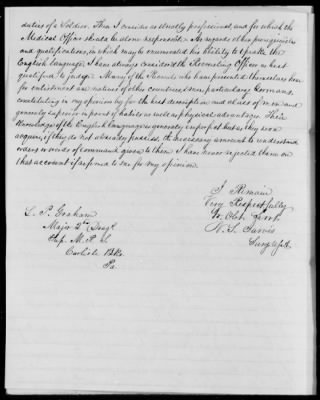 duties of a Soldier. This I consider as strictly professional and for which the
Medical Officer should be alone responsible. As regards other prerequisites
and qualifications, in which may be enumerated his ability to speak the
English language, I have always considered the Recruiting Officer as best
qualified to judge. Many of the Recruits who have presented themselves here
for enlistment are natives of other countries, more particularly Germans,
constituting in my opinion by far the best description and class of men and
generally superior in point of habits as well as physical advantages. Their
Knowledge of the English language is generally imperfect but as they soon
acquire, if they do not already possess, the necessary amount to understand
orders or words of command given to them I have never rejected them on
that account if referred to me for my opinion.
I Remain
Very Respectfully
Yr. Obt. Servt.
N. S. Jarvis
Surg. U.S.A.
L. P. Graham
Major 2nd Drags
Sup. M. R. S.
Carlisle Bks.
Pa